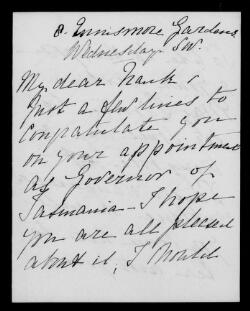 8. Ennismore Gardens
Wednesday S.W.
My dear Frank,
Just a few lines to
congratulate you
on your appointment
as Governor of
Tasmania - I hope
you are all pleased
about it, I should